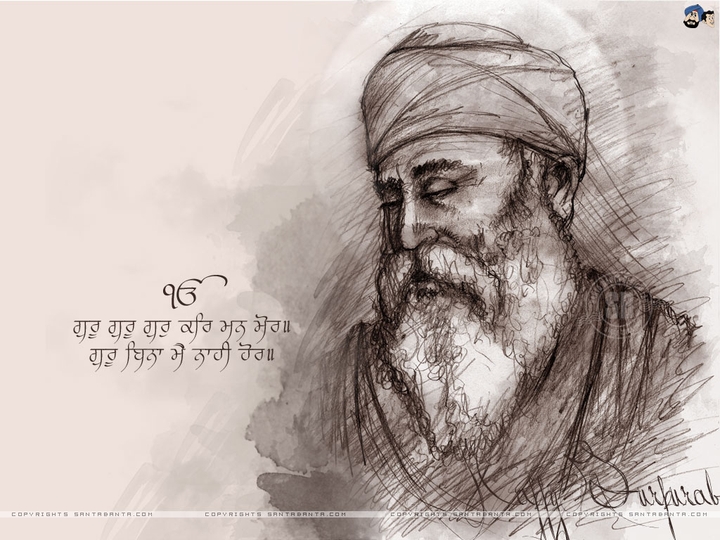 ੴ
ਗੁਰੂ ਗੁਰੂ ਗੁਰੁ ਕਰਿ ਮਨ ਮੋਰ॥
ਗੁਰੂ ਬਿਨਾ ਮੈ ਨਾਹੀ ਹੋਰ॥
Happy Gurpurab
COPYRIGHTS SANTABANTA.COM COPYRIGHTS SANTABANTA.COM COPYRIGHTS SANTABANTA.COM COPYRIGHTS SANTABANTA.COM